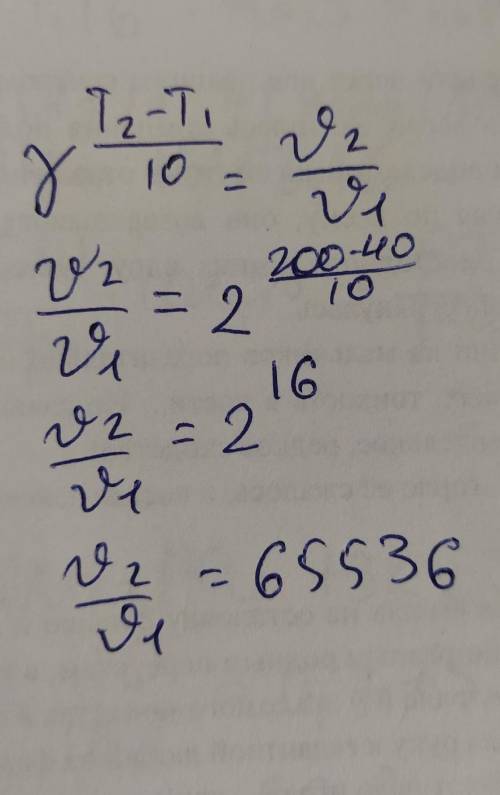 γ^((T₂-T₁)/10) = ϑ₂/ϑ₁
ϑ₂/ϑ₁ = 2^((200-40)/10)
ϑ₂/ϑ₁ = 2^16
ϑ₂/ϑ₁ = 65536